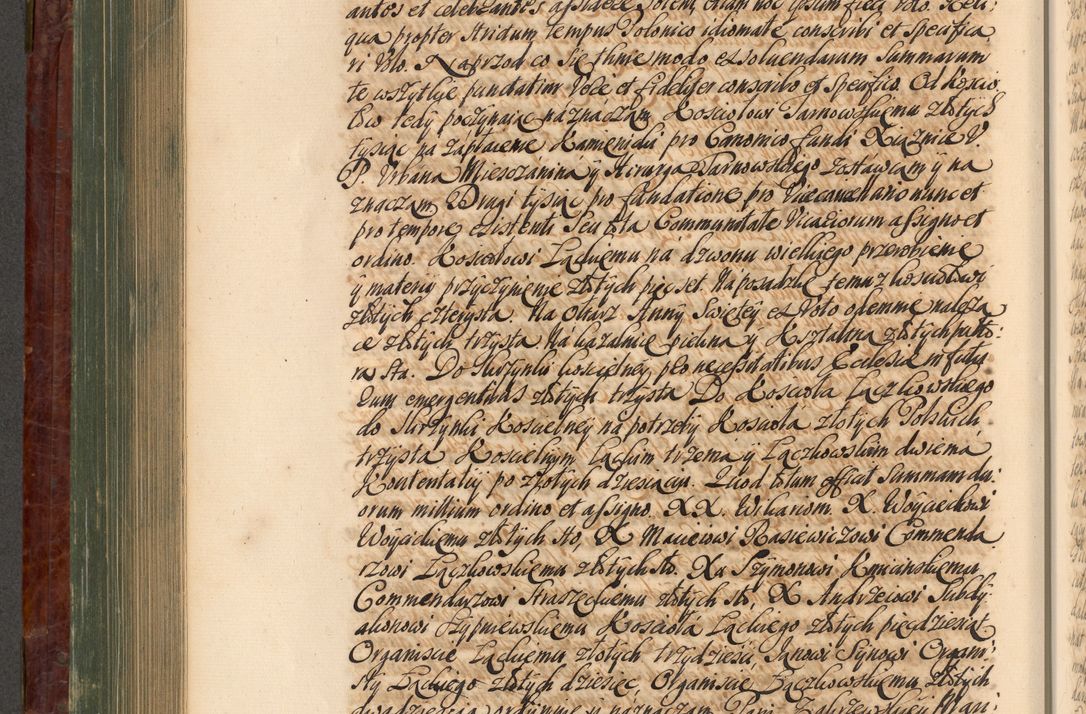 antos et celebrantos assidere solent, etiam hoc ipsum fieri volo. Reli-
qua propter Aridum tempus Polonico idiomate conscribi et specifica
ri volo. Naprzod co się thnie modo exsoluendarum Summarum
te wszytkie punctatim Voce et fideliter conscribo et specifico. Od Koscio
łow tedy poczynaiąc naznaczam Kosciołowi Tarnowskiemu złotych
tysiąc na zapłacenie Kamienicki pro Canonico fundi Xiąznice V.
P. Vrbana Mieszczanina y Tarnowskiego zostawiam y na
znaczam. Drugi tysiąc pro fundatione pro Vicecancellario nunc et
pro tempore existenti seu pla Communitate Vicariorum assigno et
ordino. Kosciołowi Łąckiemu na dzwonu wielkiego przerobienie
y materiy przyczynienie złotych pięcset. Na posadzkę temuz kosciołowi
złotych czterysta. Na Ołtarz Anny Swiętey ex Voto odemnie należą
ce złotych trzysta. Na kazalnicę piękną y Kształtną złotych pułto-
ra sta. Do Skrzynki koscielney, pro necessitatibus Ecclesiae in futu
rum emergentibus złotych trzysta. Do Kosciola Łączkowskiego
do Skrzynki Koscielney na potrzeby Kosciola złotych Polskich
trzysta. Koscielnym Łąckim trzema y Łączkowskim dwiema
Kontentaciy po złotych dziesiąci. Quod totum efficit Summam du-
orum millium ordino et assigno. XX. Wikariom. X. Woyciechowi
Woycickiemu złotych sto. X Macieiowi Rasiewiczowi Commenda
rzowi Łączkowskiemu złotych sto. Xu Szymonowi Kmiańskiemu
Commendarzowi Straszęckiemu złotych sto, X Andrzeiowi Subdy-
akonowi Kosciola Łąckiego złotych pięcdziesiąt,
Organiscie Łąckiemu złotych trzydzieści, Janowi Synowi Organi-
sty Łąckiego złotych dziesięc, Organiscie Łączkowskiemu złotych
dwadziescia ordinuię y naznaczam. Pani